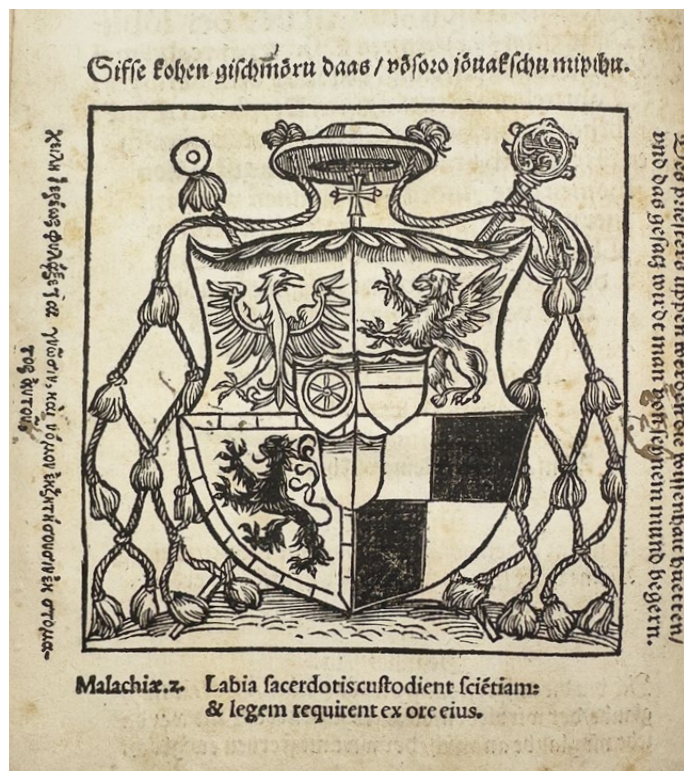 Sifse kohen gischmōru daas / vōsoro jōuakschu mipihu.
χείλη ἱερέως φυλάξεται γνῶσιν, καὶ νόμον ἐκζητήσουσιν ἐκ στόμα-
τος αὐτοῦ
Des priesters lippen werden die wissenhait hueeten /
vnd das gesatz wirdt man von seinem mund begern.
Malachiæ.2. Labia sacerdotis custodient sciētiam:
& legem requirent ex ore eius.